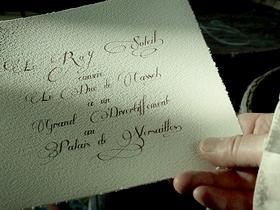 Le Roy Soleil
Convie
Le Duc de Cassel
à un
Grand Divertissement
au
Palais de Versailles